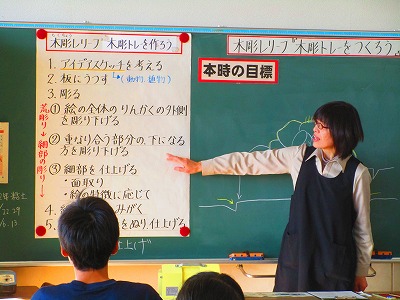 木彫レリーフ"木彫トレを作ろう"
1. アイデアスケッチを考える
2. 板にうつす
(動物、植物)
3. 彫る
荒彫り→細部の彫り→
① 絵の全体のりんかくの外側
を彫り下げる
② 重なり合う部分の、下になる
方を彫り下げる
③ 細部を仕上げる
・面取り
・絵の特徴に応じて
4.
みがく
5.
をぬり、仕上げる
上げ
木彫レリーフ"木彫トレーをつくろう。"
本時の目標